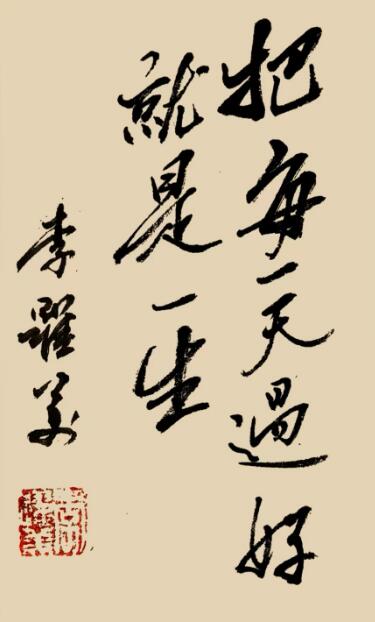 把每一天過好
就是一生
李躍第